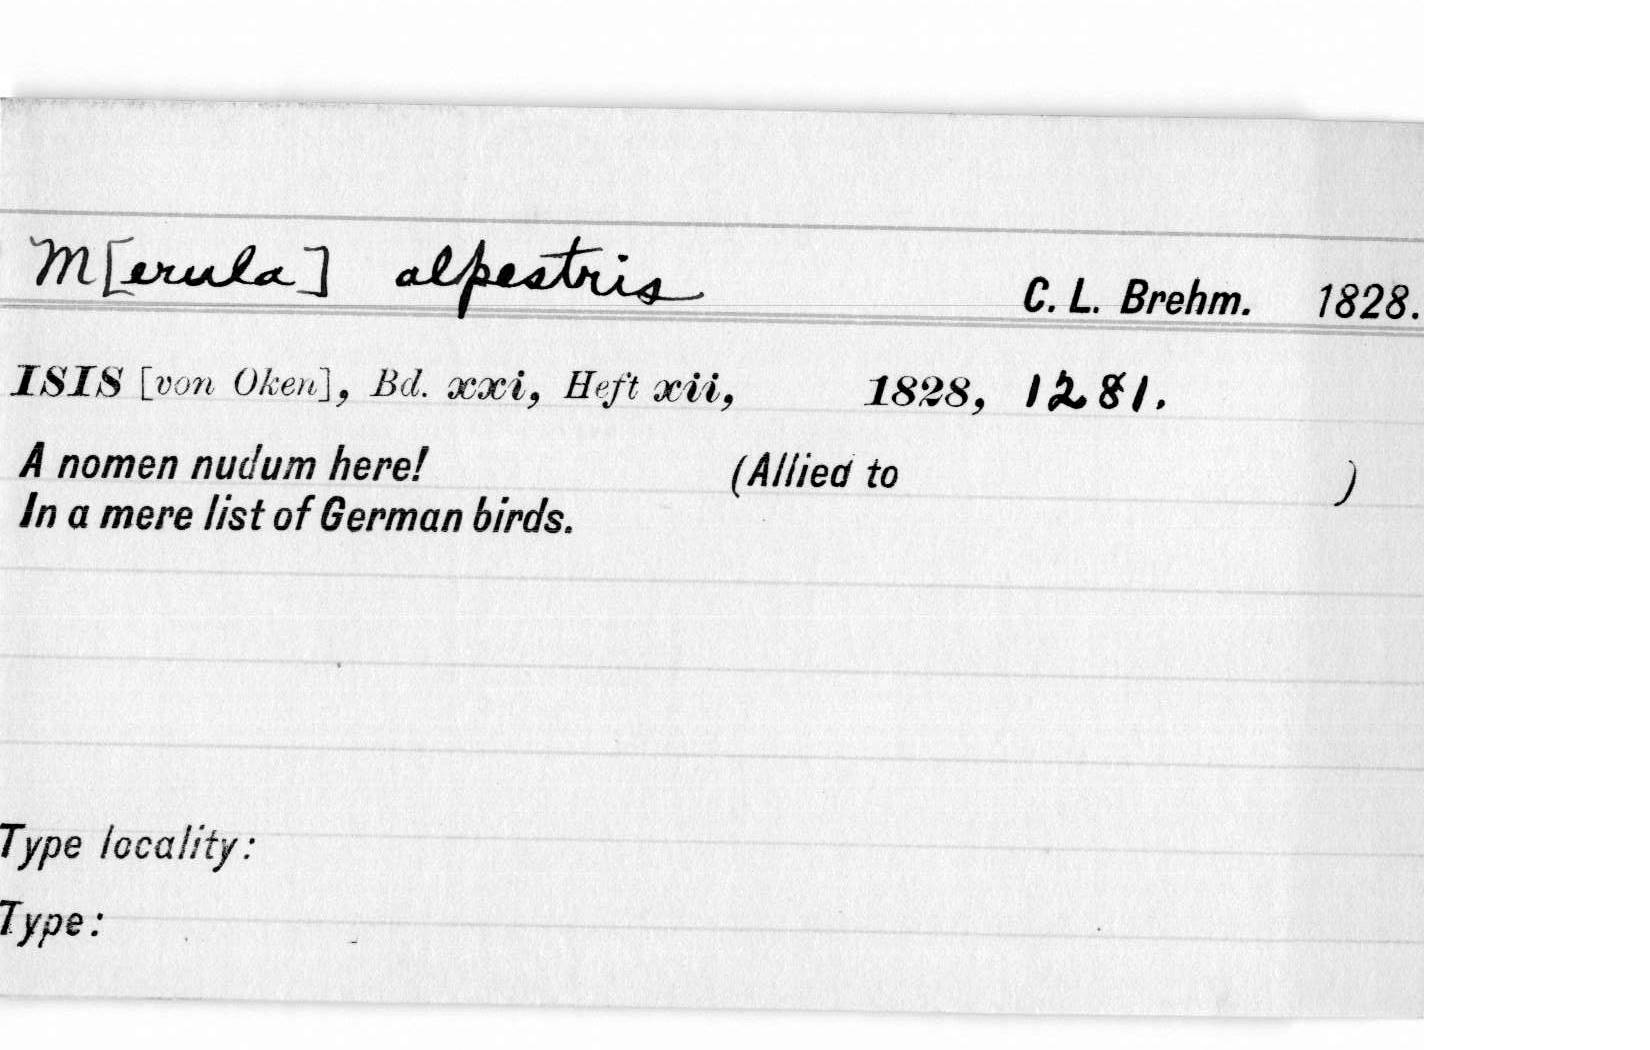 M[erula] alpestris C. L. Brehm. 1828.
ISIS [von Oken], Bd. xxi, Heft xii, 1828, 1281.
A nomen nudum here! (Allied to )
In a mere list of German birds.
Type locality:
Type: